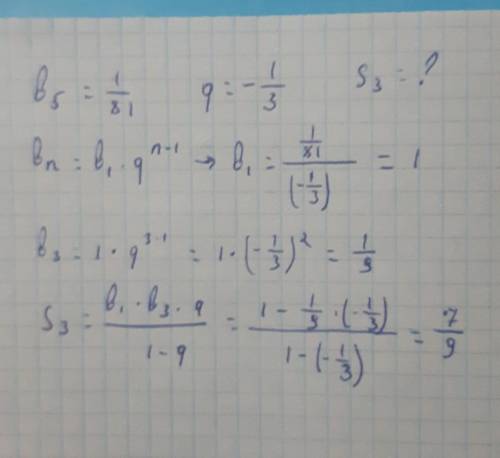 b₅ = 1/81 q = -1/3 S₃ = ?
bₙ = b₁ · qⁿ⁻¹ → b₁ = (1/81)/(-1/3) = 1
b₃ = 1 · q³⁻¹ = 1 · (-1/3)² = 1/9
S₃ = (b₁ · b₃ · q)/(1 - q) = (1 - 1/9 · (-1/3))/(1 - (-1/3)) = 7/9